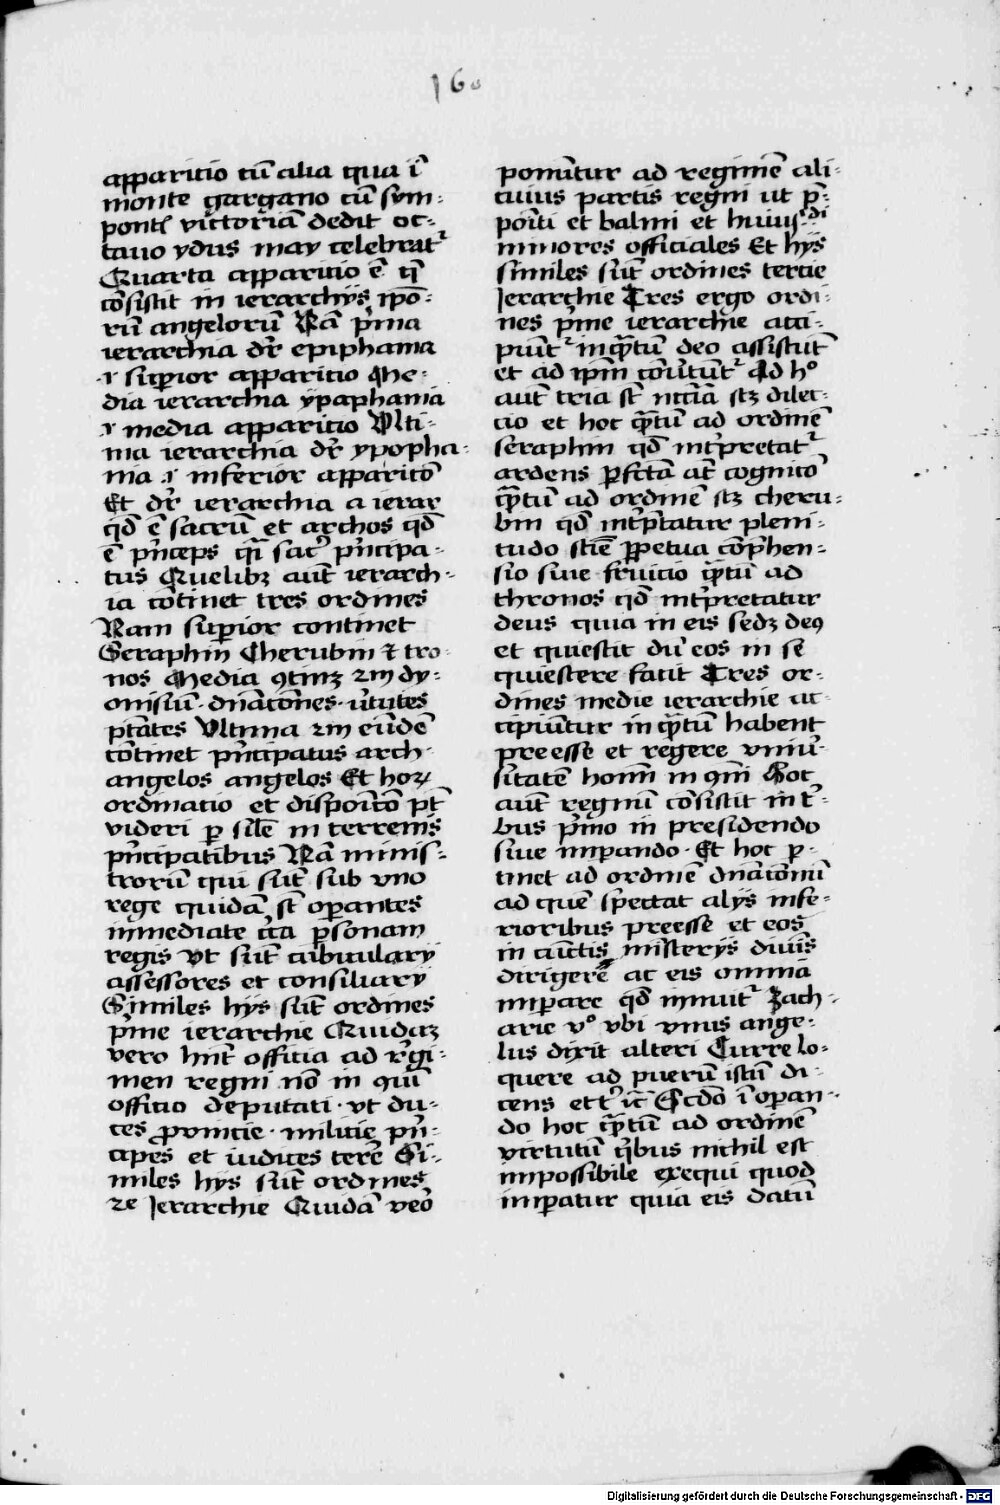 160
apparitio cū alia qua ī
monte gargano cū sym-
ponti victoriā dedit oc-
tauo ydus may celebrat᷑
Quarta apparitio ē q̄
cōsistit in ierarchijs ipō-
rū angelorū Nā pͥma
ierarchia dr̄ epiphania
.i. supͥior apparitio Me-
dia ierarchia ypaphania
.i. media apparitio Vlti-
ma ierarchia dr̄ ypopha-
nia .i. inferior apparitō
Et dr̄ ierarchia a ierar
qd̄ ē sacrū et archos qd̄
ē pͥnceps qͣi sacͬ pͥncipa-
tus Quelibꝫ aut̄ ierarch-
ia cōtinet tres ordines
Nam supͥior continet
Seraphin Cherubin ⁊ tro-
nos Media ꝯtinꝫ 2m dy-
onisiū . dn̄acōnes . v̓tutes
ptātes Vltima 2m eūdē
cōtinet pͥncipatus arch-
angelos angelos Et hoꝝ
ordinatio et disposicō pt̄
videri ꝑ sil̄e in terrenis
pͥncipatibus Nā minis-
trorū qui sūt sub vno
rege quidā st̄ oꝑantes
inmediate cͥca ꝑsonam
regis Vt sūt cubiculary
assessores et consiliarij
Similes hijs sūt ordines
pͥme ierarchie Quidaꝫ
vero hn̄t officia ad rͤgi-
men regni nō in ꝯuī
officio deputati . vt du-
ces ꝓuincie . milicie pͥn-
cipes et iudices terͤ Si-
miles hijs sūt ordines
2e Ierarchie Quidā veͦo
ponūtur ad regimē ali-
cuius partis regni ut p̄-
poīti et baliui et huiusͫdi
minores officiales Et hijs
similes sūt ordines tercie
Ierarchie Tres ergo ordi-
nes pͥme ierarchie acci-
piūt᷑ inqͣ̄tū deo assistūt
et ad ip̄m cōu̓tūt᷑ Ad hͦ
aut̄ tria st̄ nc̄cͣia scꝫ dilec-
cio et hoc qͣ̄tū ad ordinē
seraphin qd̄ int̓pretat᷑
ardens ꝑfctā at̄ cognicō
qͣ̄tū ad ordinē scꝫ cheru-
bin qd̄ int̓pͤtatur pleni-
tudo scīe ꝑpetua cōpͤhen-
sio siue fruicio qͣ̄tū ad
thronos qd̄ int̓pretatur
deus quia in eis sedꝫ deꝯ
et quiescit dū eos in se
quiescere facit Tres or-
dines medie ierarchie ac-
cipiūtur inqͣ̄tū habent
preesse et regere vniu̓-
sitatē hoīm in ꝯmī Hoc
aut̄ regimī cōsistit in tͥ-
bus pͥmo in presidendo
siue imꝑando . Et hoc ꝑ-
tinet ad ordinē dn̄acionū
ad quē spectat alijs infe-
rioribus preesse et eos
in cūctis misterijs diuīs
dirigere ac eis omnia
imꝑare qd̄ innuit᷑ Zach-
arie vͦ vbi vnus ange-
lus dixit alteri Curre lo-
quere ad puerū istū di-
cens etcͬ ic̄ Scdo ī oꝑan-
do hoc qͣ̄tū ad ordinē
virtutū qͥbus nichil est
impossibile exequi quod
imꝑatur quia eis datū